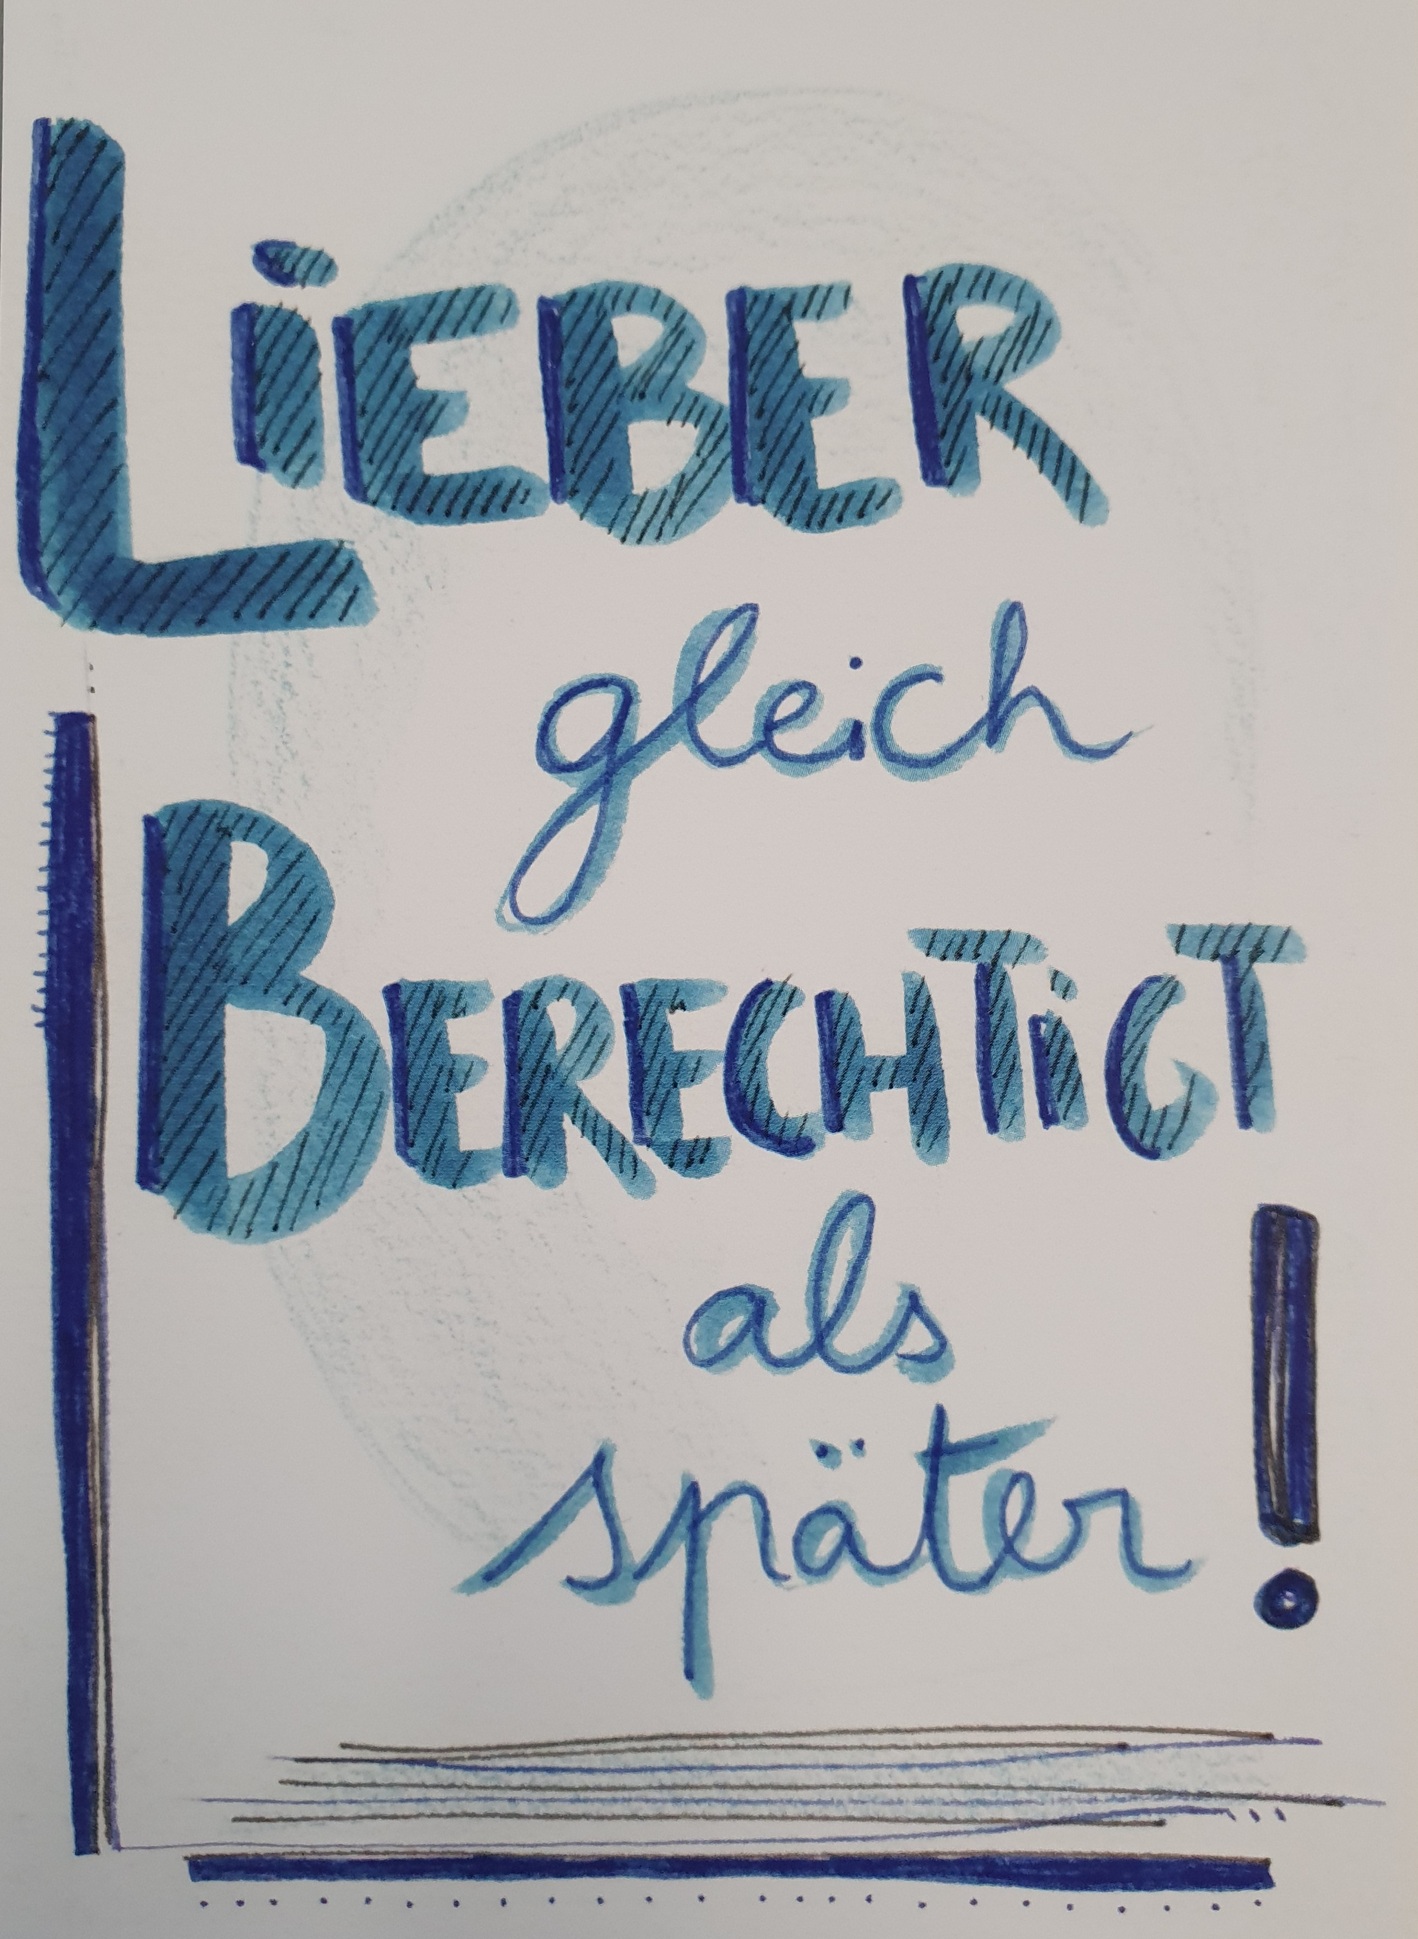 LiEBER
gleich
BERECHTiGT
als
später!